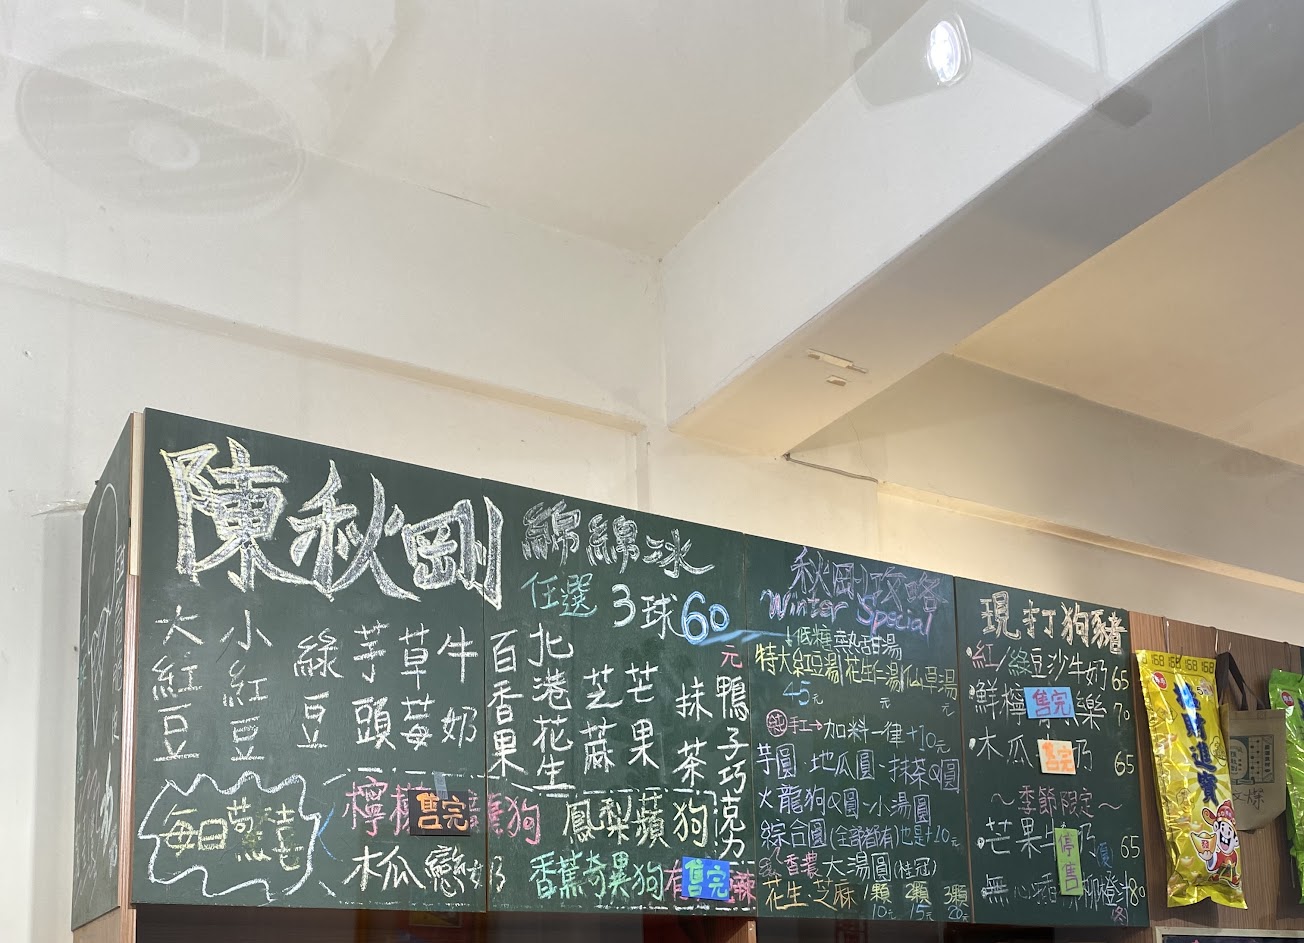 陳秋剛
綿綿冰
任選3球60元
大紅豆
小紅豆
綠豆
芋頭
草莓
牛奶
百香果
北港花生
芝蔴
芒果
抹茶
鴨子巧克力
每日驚喜
檸檬 售完 狗
木瓜戀奶
鳳梨蘋狗
香蕉奇異狗
售完 辣
秋剛攻略
Winter Special
低糖熱甜湯
特大紅豆湯 花生仁湯 仙草湯
45元 元 元
純手工→加料一律+10元
芋圓·地瓜圓·抹茶Q圓
火龍狗Q圓·小湯圓
綜合圓(全部都有)也是+10元
香濃大湯圓(桂冠)
花生·芝麻 1顆 2顆 3顆
10元 15元 20元
現打狗豬
紅/綠豆沙牛奶 65
鮮檸 售完 樂 70
木瓜 售完 奶 65
~季節限定~
芒果牛奶 65
停售
無心 柳橙汁 80
168 168 168 168
財進寶